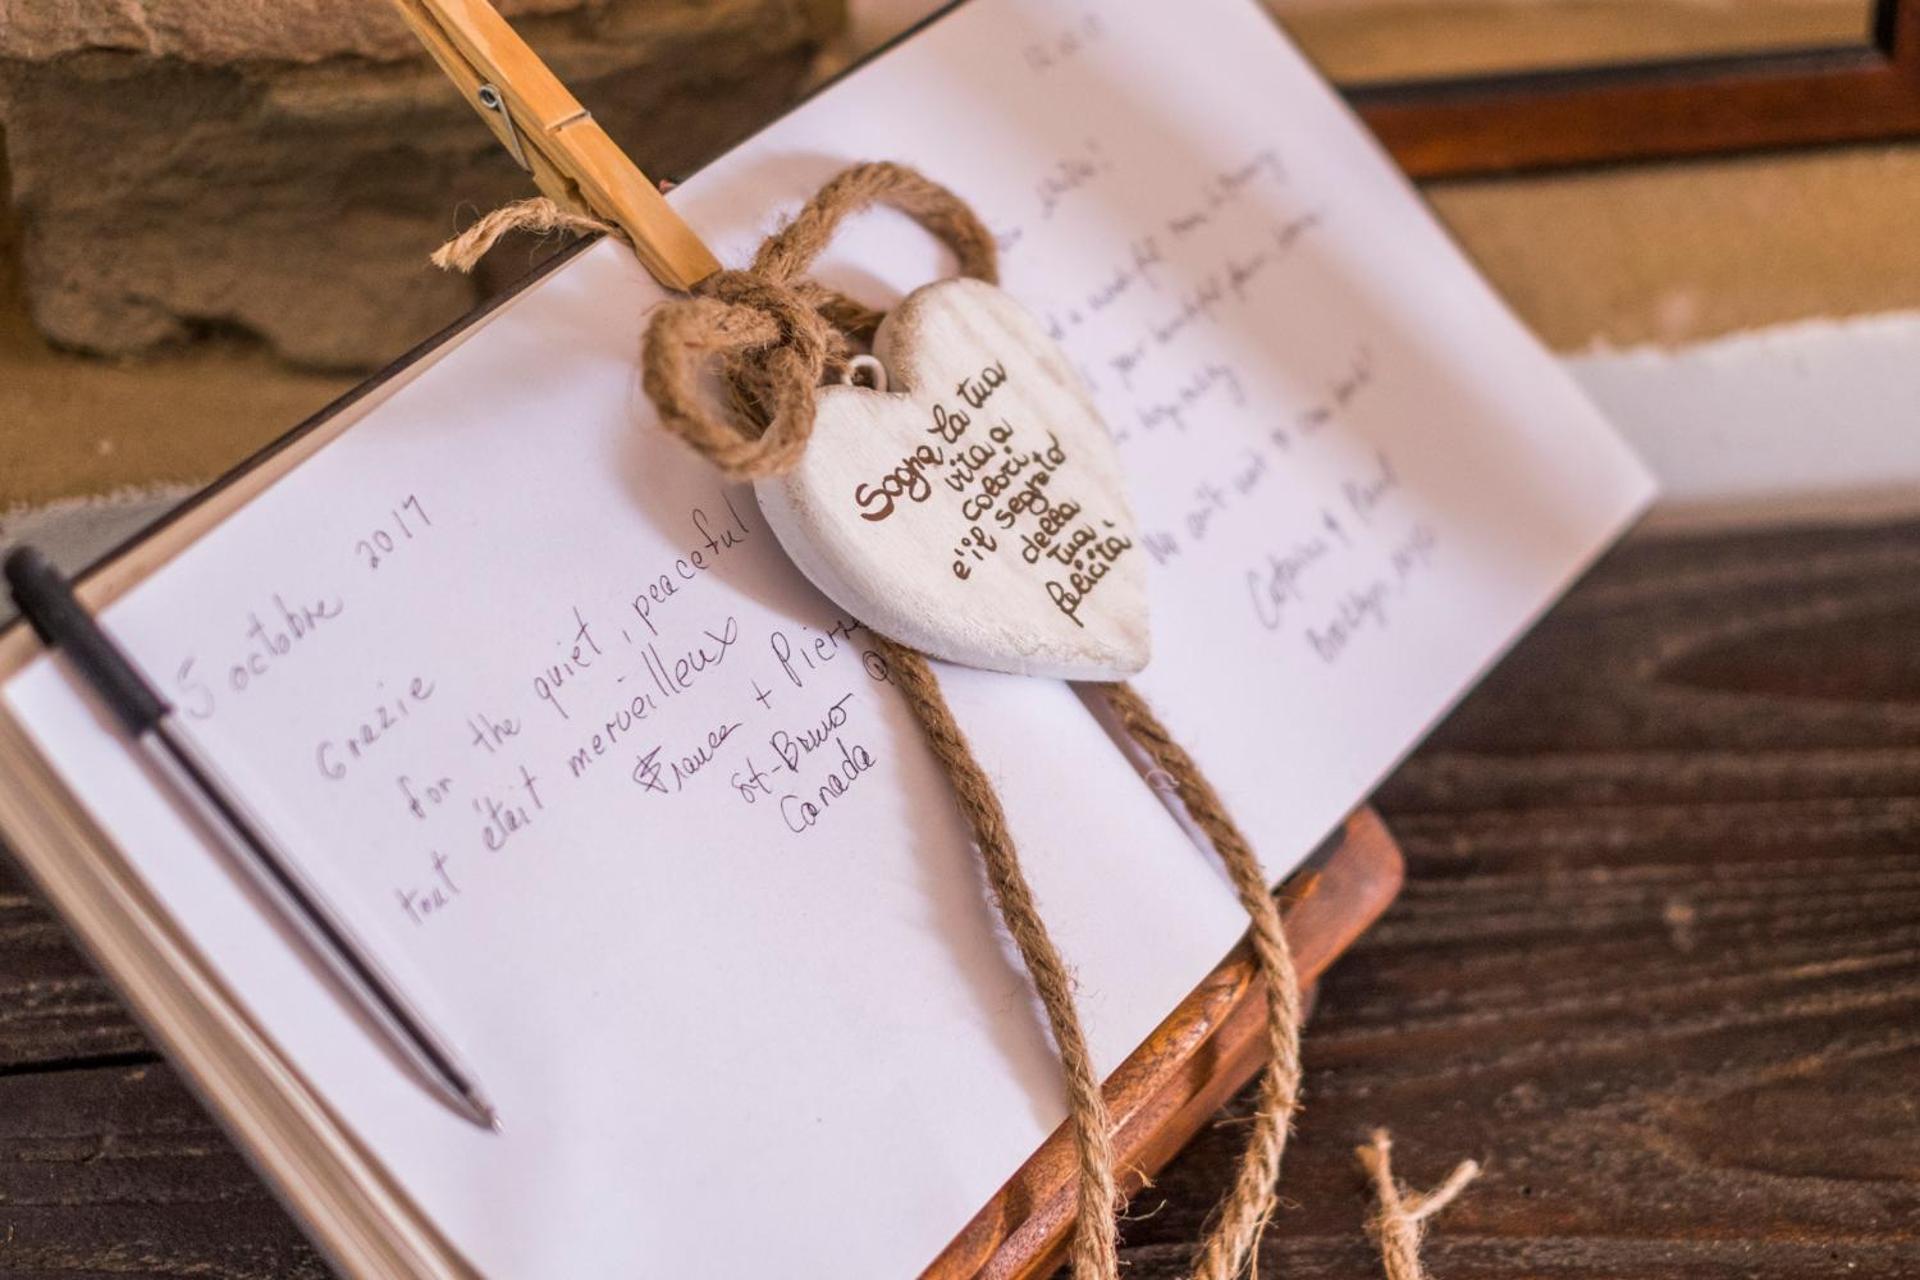 5 octobre 2017
Grazie
for the quiet, peaceful
tout était merveilleux
France + Pierre
St-Bruno
Canada
Sogna la tua
vita a
colori
e' il segreto
della
tua
felicità
a wonderful
your beautiful
hospitality
wait to come back!
& Paul
Brooklyn, NYC